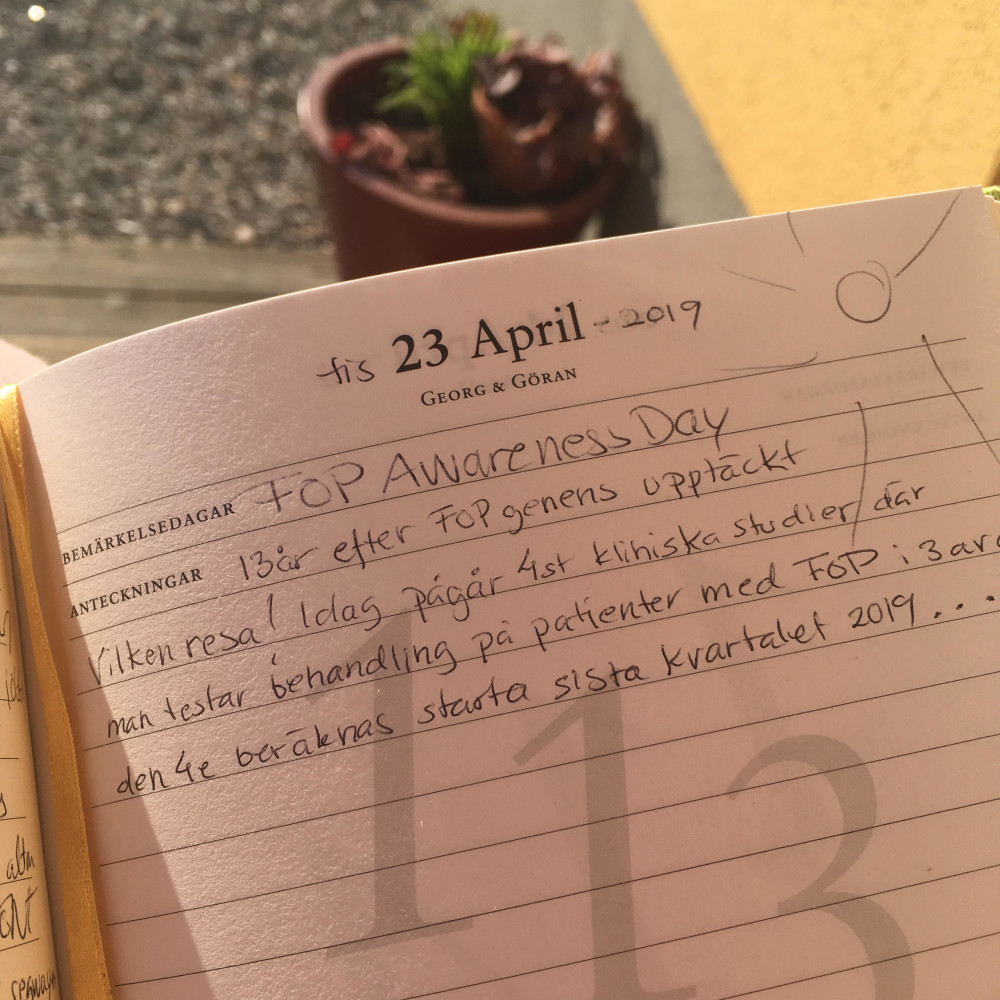 tis 23 April - 2019
GEORG & GÖRAN
BEMÄRKELSEDAGAR FOP Awareness Day
ANTECKNINGAR 13år efter FOP genens upptäckt
Vilken resa! Idag pågår 4st kliniska studier där
man testar behandling på patienter med FOP i 3 av
den 4e beräknas starta sista kvartalet 2019....
113
altm
segway